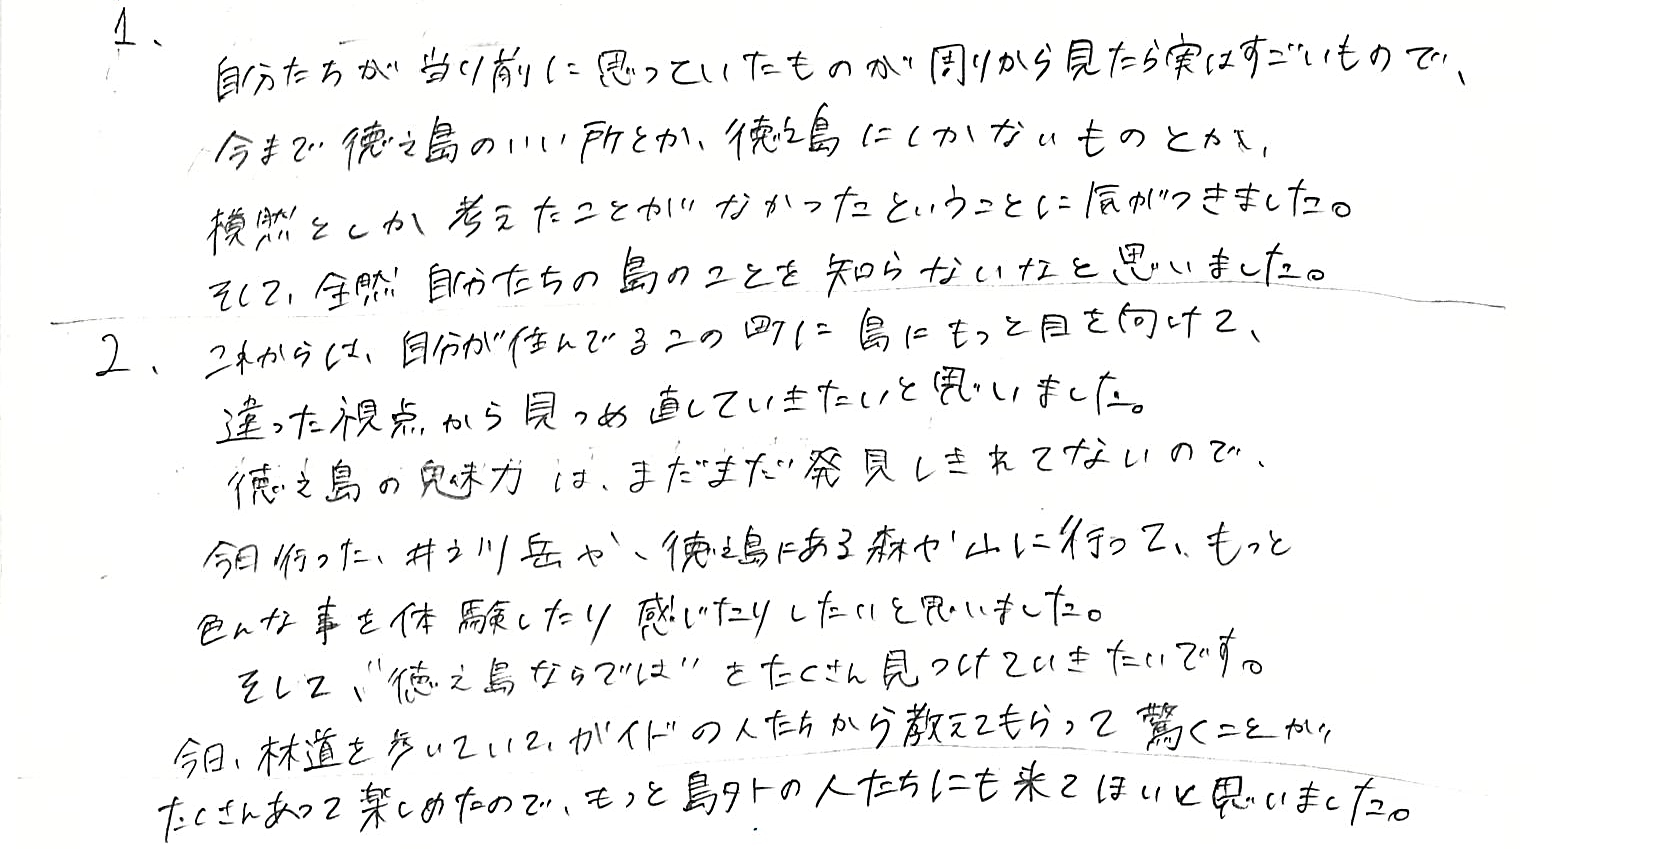 1、
自分たちが当り前に思っていたものが周りから見たら実はすごいもので、
今まで徳之島のいい所とか、徳之島にしかないものとか、
模然としか考えたことがなかったということに気がつきました。
そして、全然自分たちの島のことを知らないなと思いました。
2、これからは、自分が住んでるこの町に島にもっと目を向けて、
違った視点から見つめ直していきたいと思いました。
徳之島の魅力は、まだまだ発見しきれてないので、
今日行った、井之川岳や、徳之島にある森や山に行って、もっと
色んな事を体験したり感じたりしたいと思いました。
そして、"徳之島ならでは"をたくさん見つけていきたいです。
今日、林道を歩いていて、ガイドの人たちから教えてもらって驚くことが
たくさんあって楽しめたので、もっと島外の人たちにも来てほいと思いました。